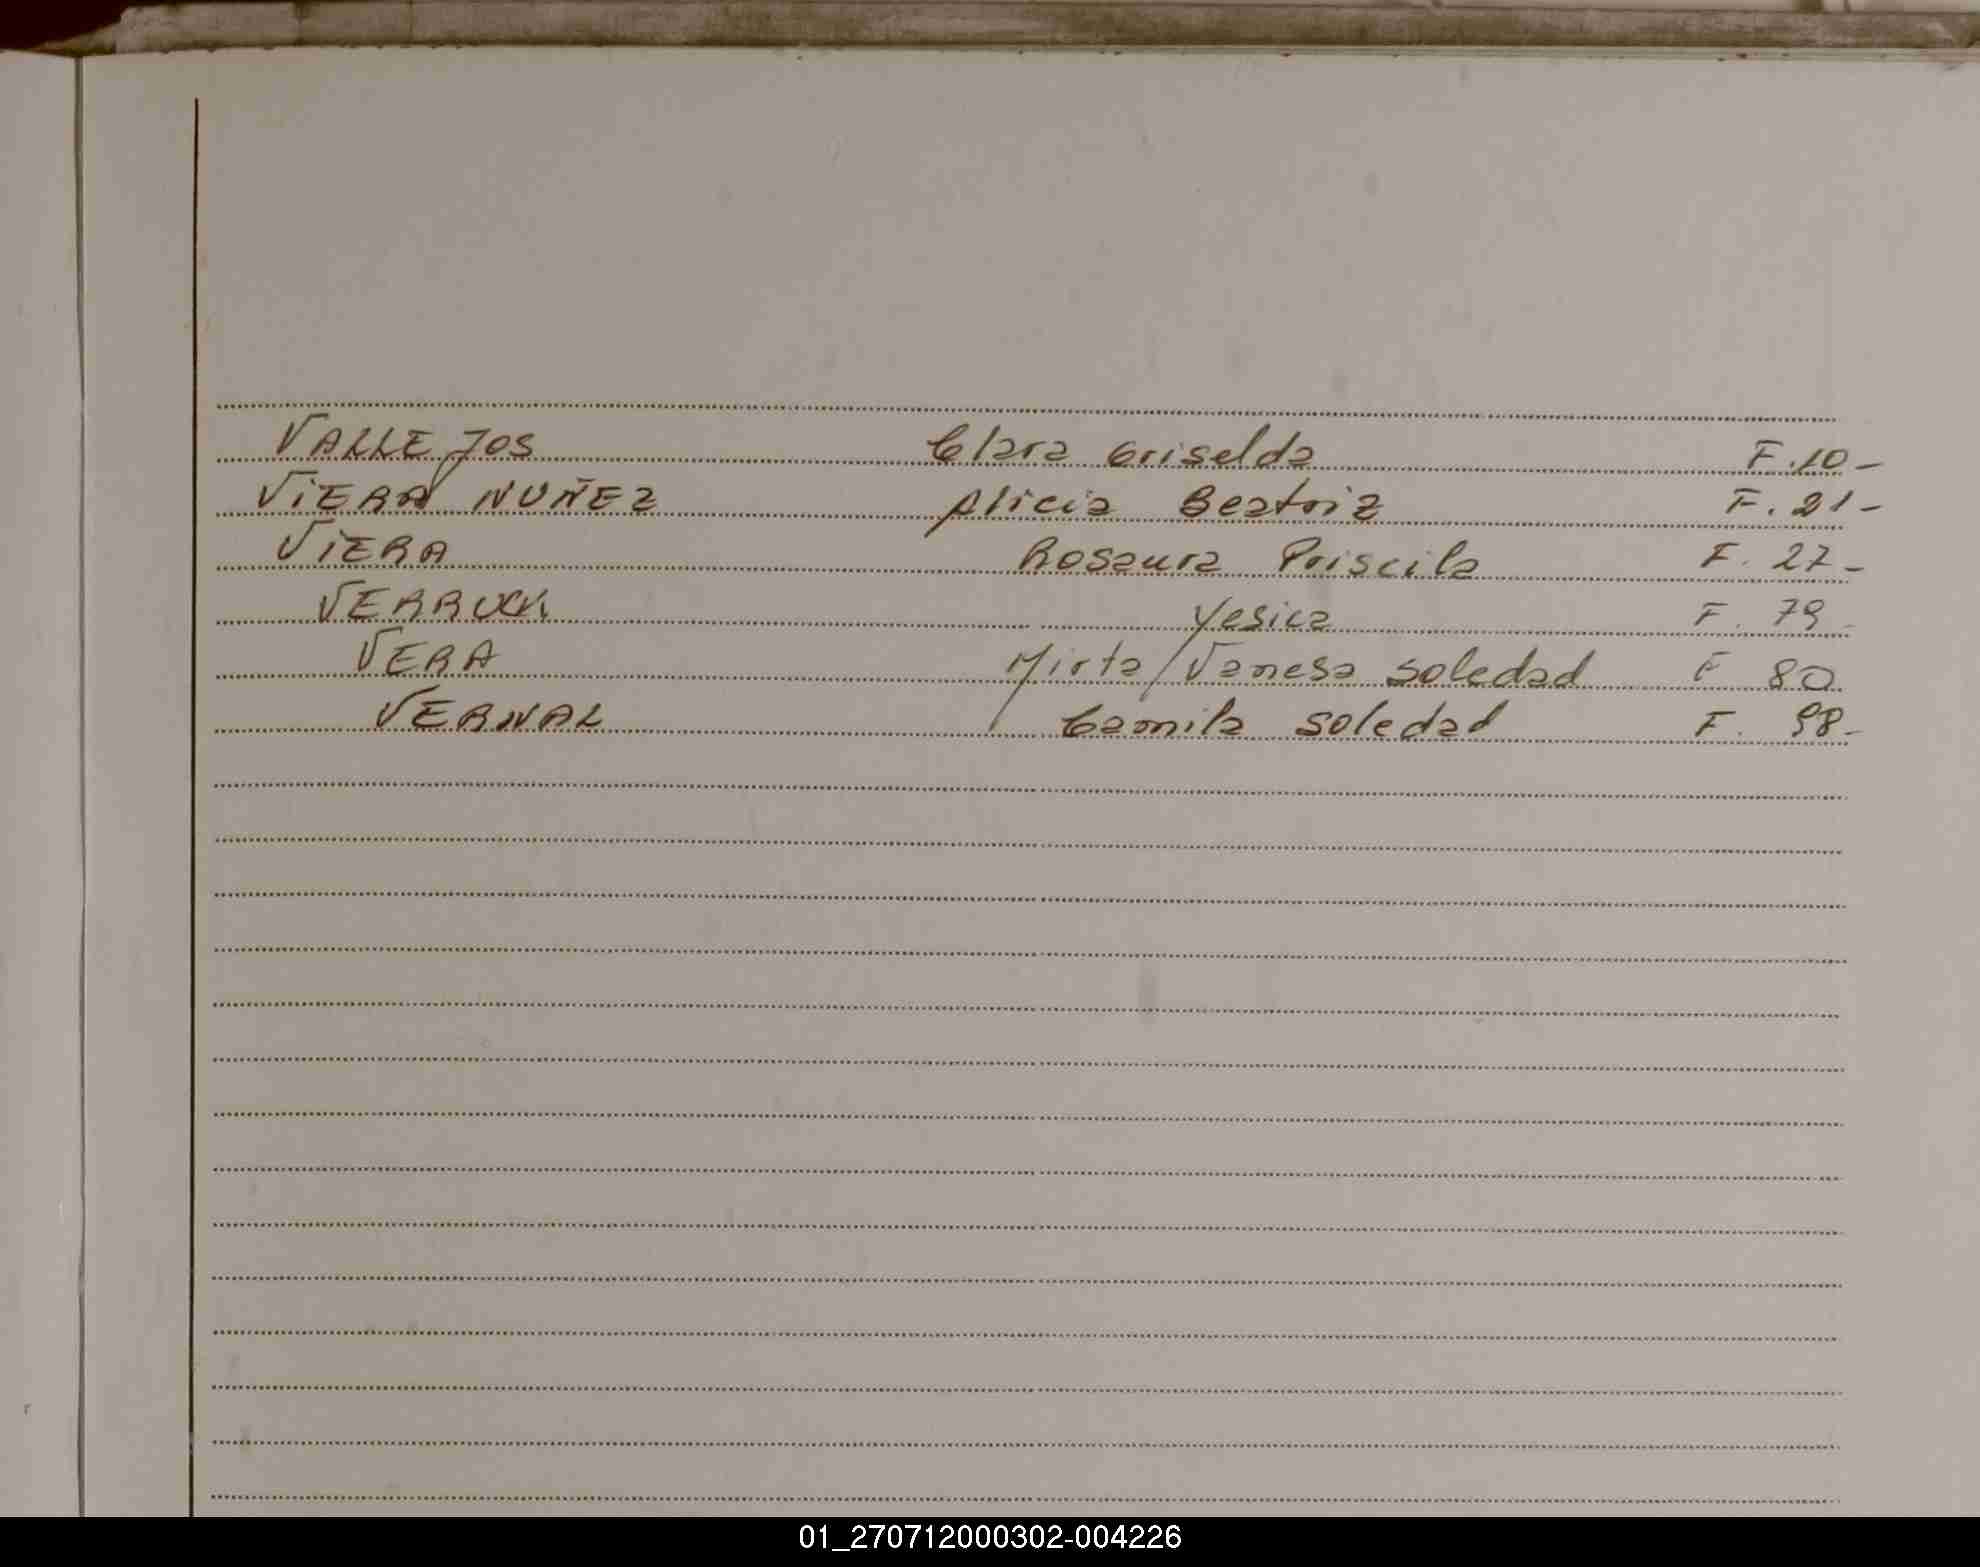 VALLEJOS Clara Griselda F. 10-
VIERA NUÑEZ Alicia Beatriz F. 21-
VIERA Rosaura Priscila F. 27-
Yesica F. 79-
VERA Mirta Vanesa Soledad F 80
VERNAL Camila Soledad F. 98-
01_270712000302-004226